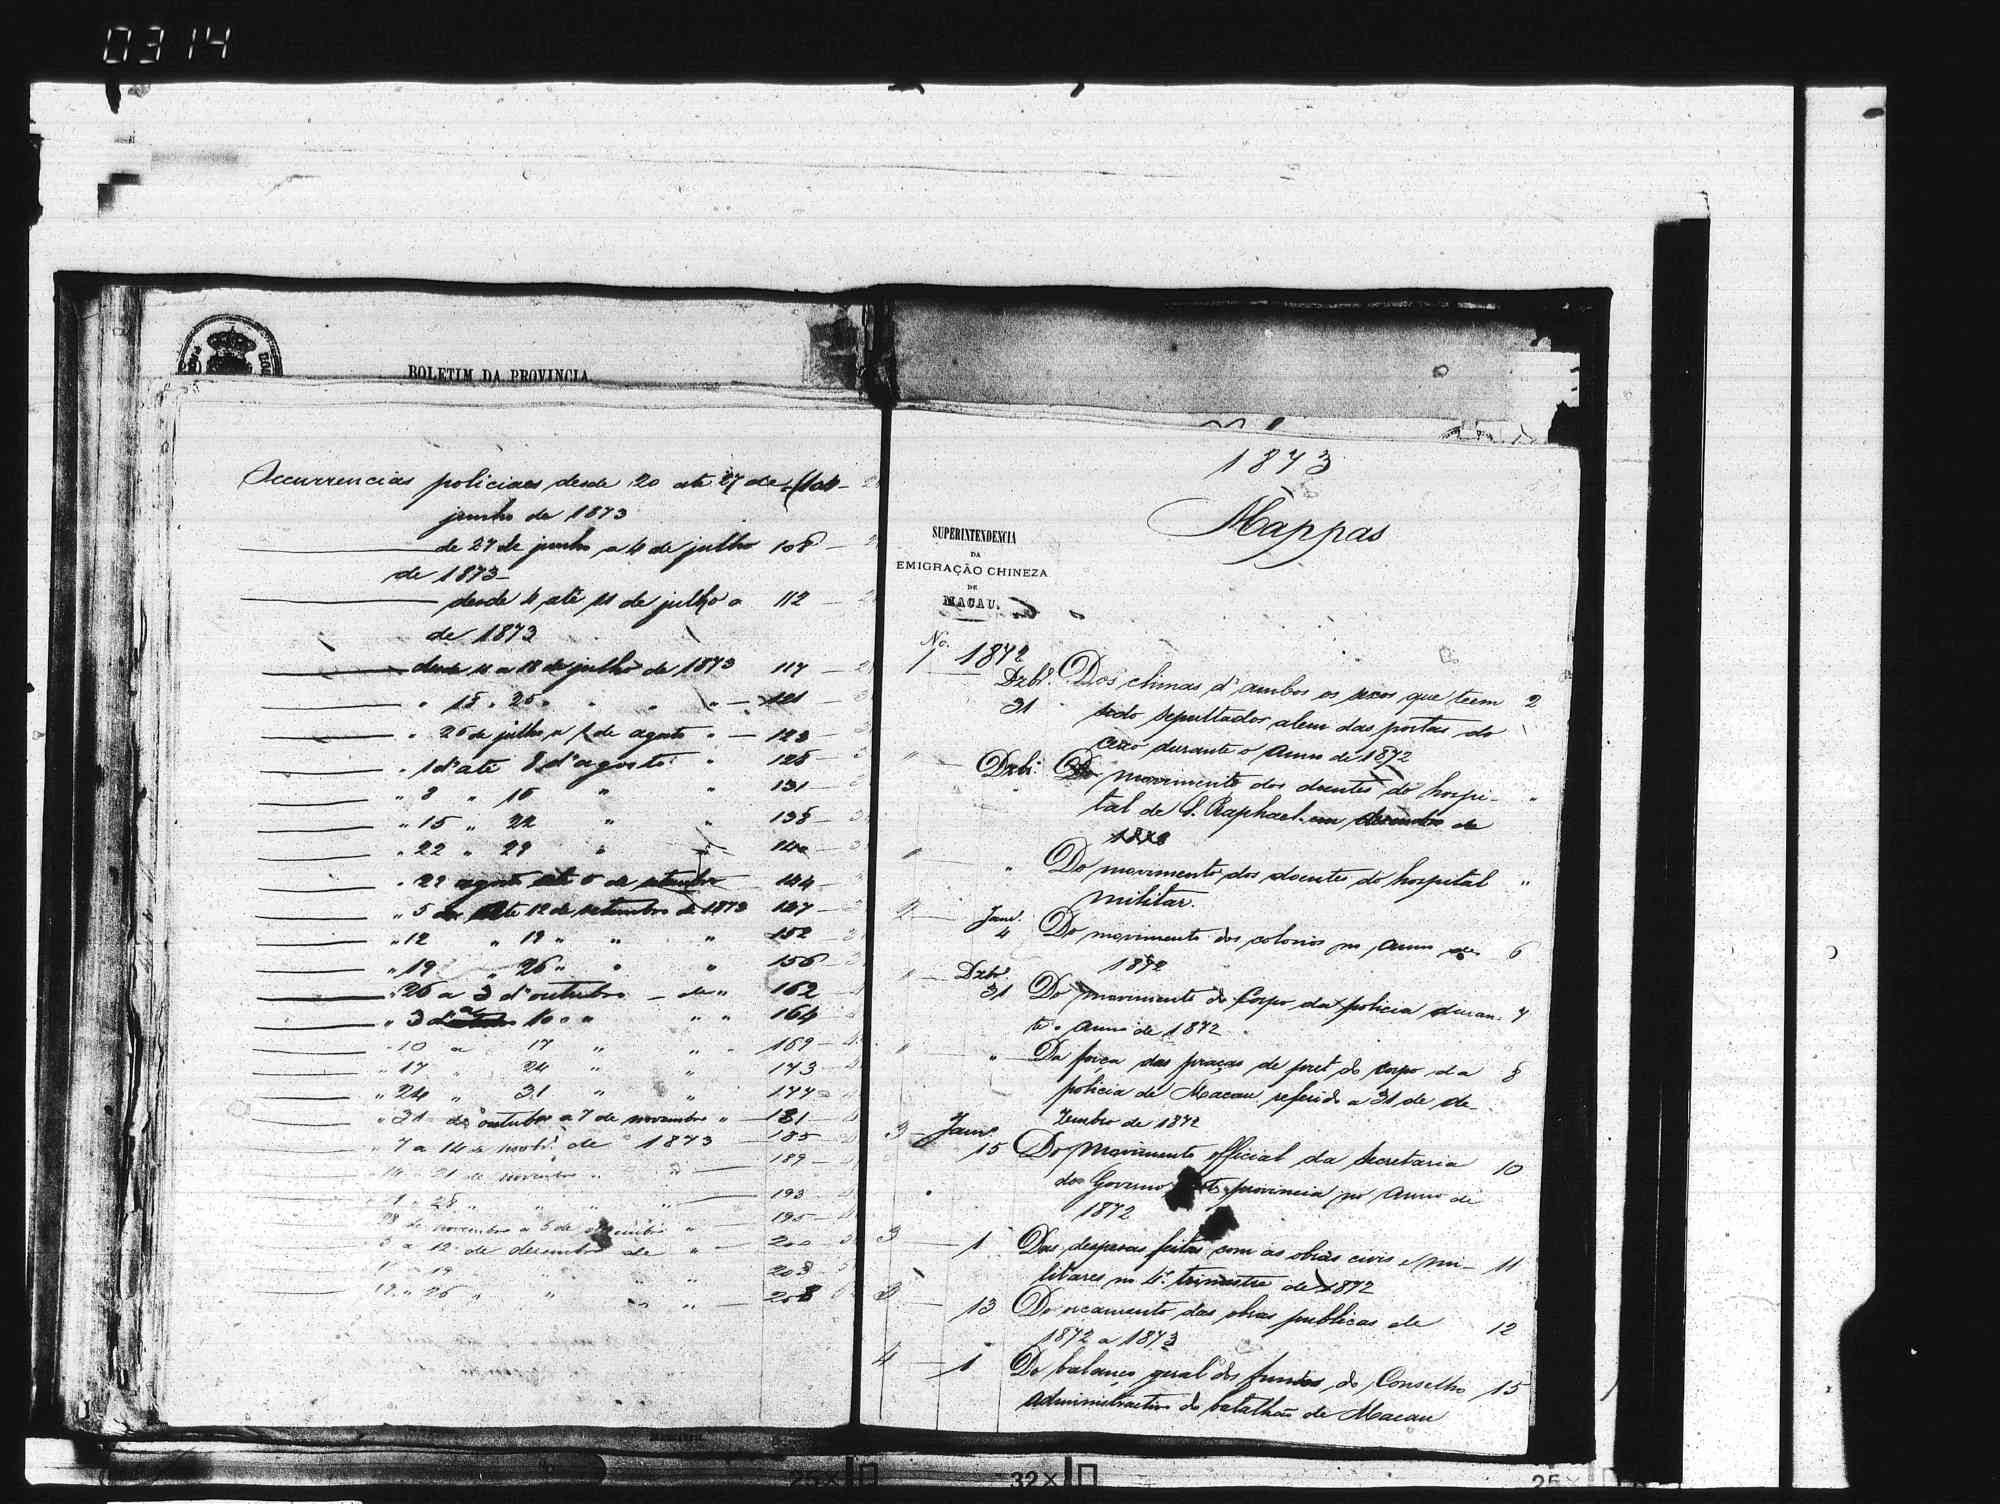 0314
BOLETIM DA PROVINCIA
Occurrencias policiaes desde 20 até 27 de 104
junho de 1873
de 27 de junho a 4 de julho 108
de 1873
desde 4 até 11 de julho 112
de 1873
desde 11 a 18 de julho de 1873 117
" 18 " 25 " " " " 121
" 25 de julho a 1 de agosto " 123
" 1 d' até 8 d'agosto " 125
" 8 " 15 " " 131
" 15 " 22 " " 135
" 22 " 29 " " 140
" 29 agosto até 5 de setembro 144
" 5 até 12 de setembro de 1873 147
" 12 " 19 " " " 152
" 19 " 26 " " " 156
" 26 a 3 d'outubro de " 162
" 3 a 10 " " " " 164
" 10 a 17 " " " 169
" 17 " 24 " " 173
" 24 " 31 " " 177
" 31 de outubro a 7 de novembro " 181
" 7 a 14 de novbro de 1873 185
14 " 21 de novembro " " 189
" 28 " " " " 193
28 de novembro a 5 de dezembro " 195
5 a 12 de dezembro de " 200
" 19 " " " 203
19 " 26 " " " " 208
1873
Mappas
SUPERINTENDENCIA
DA
EMIGRAÇÃO CHINEZA
DE
MACAU.
No. 1872
1 Dzbr. Dos chinas d'ambos os sexos que teem 2
31 sido sepultados alem das portas do
cerco durante o anno de 1872
" Dzbr. Do movimento dos doentes do hospi- "
tal de S. Raphael em dezembro de
1872
" " Do movimento dos doentes do hospital "
militar.
2 Janr. 4 Do movimento dos colonos no anno de 6
1872
" Dzbr. 31 Do movimento do Corpo da policia duran- 7
te o anno de 1872
" " Da força das praças de pret do corpo da 8
policia de Macau referido a 31 de de-
zembro de 1872
3 Janr. 15 Do movimento official da Secretaria 10
do Governo provincia no anno de
1872
3 1 Das despesas feitas com as obras civis e mi- 11
litares no 4º trimestre de 1872
3 13 Do orcamento das obras publicas de 12
1872 a 1873
4 1 Do balanço geral dos fundos do Conselho 15
administractivo do batalhão de Macau
25X
32X
25X